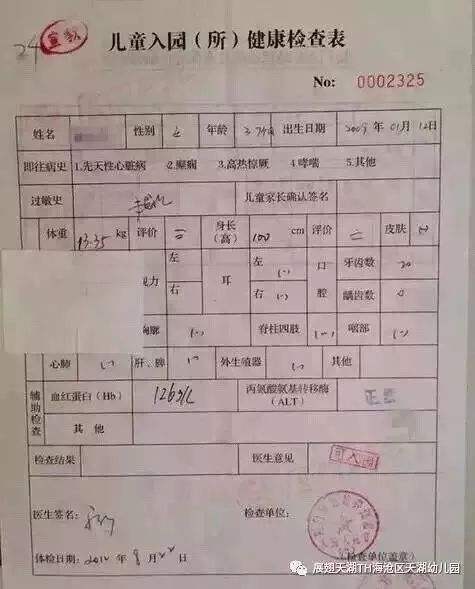 24 宣教
儿童入园(所)健康检查表
No: 0002325
姓名 性别 女 年龄 出生日期 2009 年 01 月 12 日
既往病史 1.先天性心脏病 2.癫痫 3.高热惊厥 4.哮喘 5.其他
过敏史 儿童家长确认签名
体重 13.35 kg 评价 身长(高) 100 cm 评价 皮肤 (-)
左 左 (-) 口腔 牙齿数 20
力 耳
右 右 (-) 龋齿数 0
胸廓 (-) 脊柱四肢 (-) 咽部 (-)
心肺 (-) 肝、脾 (-) 外生殖器 (-) 其他
辅助检查 血红蛋白(Hb) 126g/L 丙氨酸氨基转移酶(ALT) 正常
其他
检查结果 医生意见 可入园
医生签名: 检查单位:
体检日期: 2012 年 8 月 22 日 (检查单位盖章)
展翅天湖TH海沧区天湖幼儿园